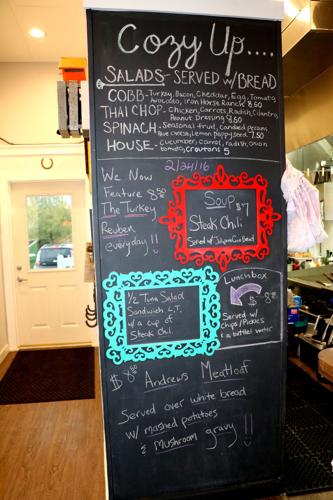 Cozy Up....
SALADS- SERVED W/ BREAD
COBB- Turkey, Bacon, Cheddar, Egg, Tomato
Avocado, Iron Horse Ranch 8.50
THAI CHOP- Chicken, Carrots, Radish, Cilantro,
Peanut Dressing 8.50
SPINACH- Seasonal fruit, candied pecans,
blue cheese, Lemon poppyseed 7.50
HOUSE- Cucumber, Carrot, radish, Onion
tomato, Croutons 5
2/24/16
We Now
Feature 8.50
The Turkey
Reuben
everyday!!
Soup $7
Steak Chili
Served w/ Jalapeno Corn Bread
1/2 Tuna Salad
Sandwich L.T.
w/ a cup of
Steak Chili
$8.50
Lunchbox
$ 8.95
Served w/
Chips/Pickles
& a bottled water
Andrews Meatloaf
Served over white bread
w/ mashed potatoes
& Mushroom gravy!!